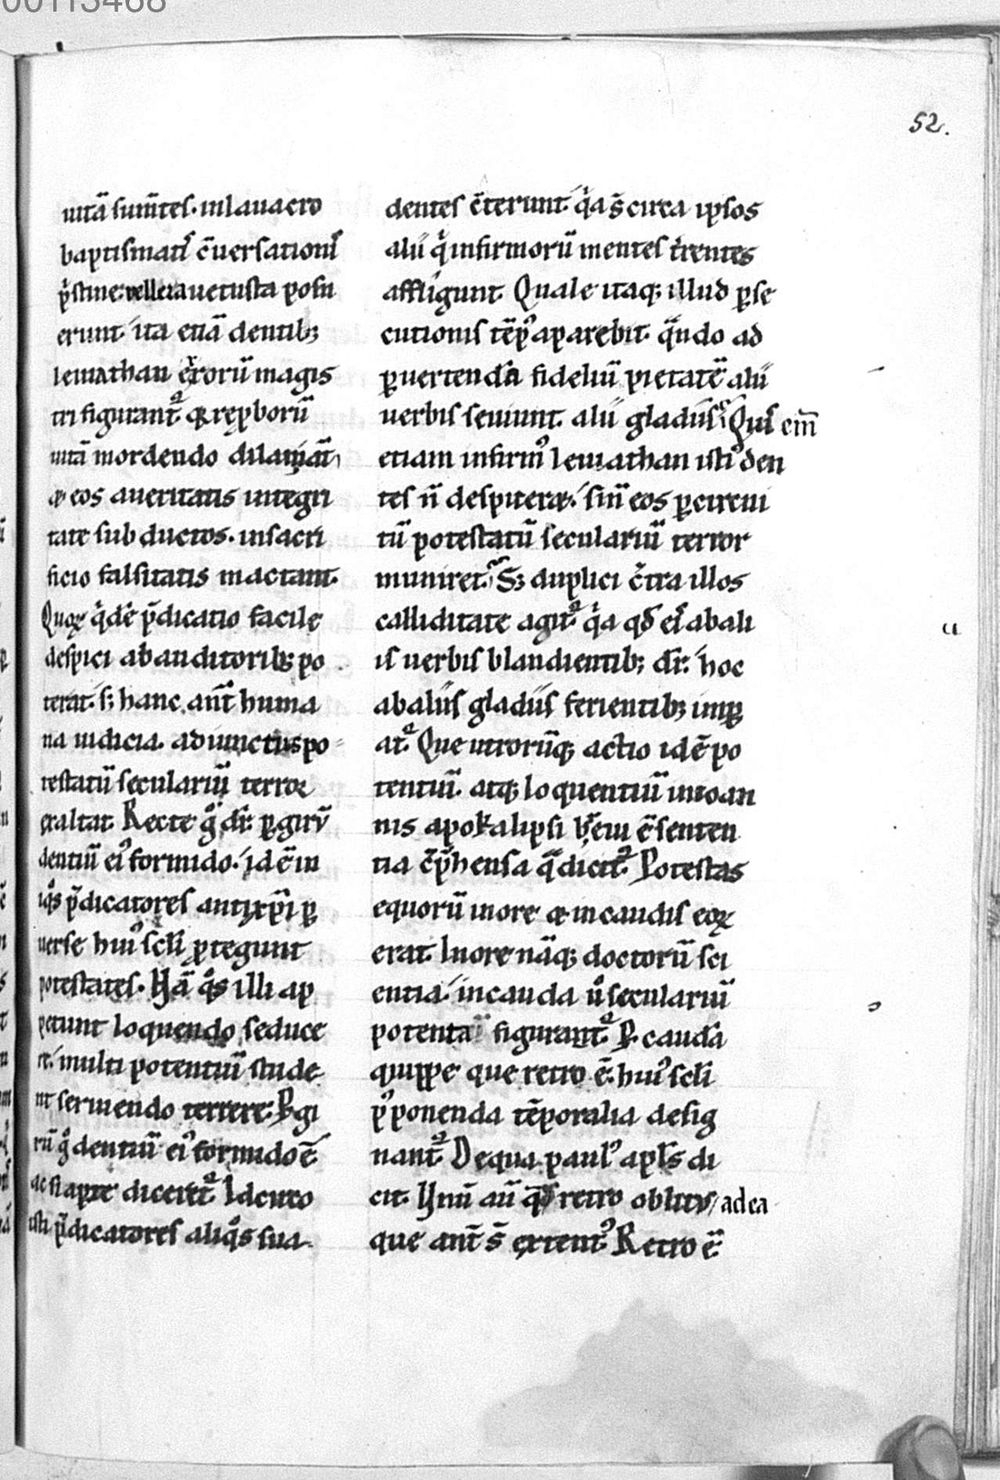 00113468
52.
uitā sum̄tes. inlauacro
baptismatꝭ ꝯ̄uersationis
p̓stine uellera uetusta posu
erunt. ita etiā dentibꝫ
leuiathan erroꝝū magis
tri figurant᷑. q̇ reproborū
uitā mordendo dilaniāt
⁊ eos aueritatis integri
tate subductos. insacri
ficio falsitatis mactant.
Quoꝝ q̇dē p̄dicatio facile
despici abauditoribꝫ po
terat. sꝫ hanc ant̄ huma
na iudicia. adiunctus po
testatū seculariū terror
exaltat. Recte gͦ dr̄. ꝑ girū
dentiū eiꝰ formido. id ē in
iq̊s p̄dicatores antixp̄i ꝑ
uerse huiꝰ sc̄li ꝓtegunt
potestates. Nā q̊s illi ap
petunt loquendo seduce
re. multi potentiū stude
nt seruiendo terrere. P gi
rū gͦ dentiū eiꝰ formido ē
ac si apte diceret᷑. Idcirco
isti p̄dicatores aliq̊s sua
dentes ꝯ̄terunt. q̇a s̄ circa ipsos
alii q̇ infirmorū mentes t̄rentes
affligunt. Quale itaqꝫ illud ꝑse
cutionis tēpꝰ aparebit. qn̄do ad
ꝑuertendā fideliū pietatē alii
uerbis seuiunt. alii gladiis. Quis eni᷑
etiam infirmꝰ leuiathan istiꝰ den
tes n̄ despiceret. si n̄ eos ꝑ circui
tū potestatū seculariū terror
muniret. Sꝫ duplici ꝯ̄tra illos
calliditate agit᷑. q̇a qd̄ eis abali
is uerbis blandientibꝫ dr̄. hoc
abaliis gladiis ferientibꝫ imꝑ
at᷑. Que utrorūqꝫ actio idē po
tentiū. atqꝫ loquentiū inioan
nis apokalipsi b̄ui ē senten
tia cp̄hensa q̄ dicit᷑. Potestas
equorū inore ⁊ incaudis eoꝝ
erat. Inore nāqꝫ doctorū sci
entia. incauda ů seculariū
potentia figurant᷑. P caudā
quippe que retro ē. huiꝰ sc̄li
pꝰponenda tēporalia desig
nant᷑. De qua paulꝰ apl̄s di
cit. Vnū au̅ que retro oblitꝰ / ad ea
que ant̄ s̄ extentꝰ. Retro ē
u